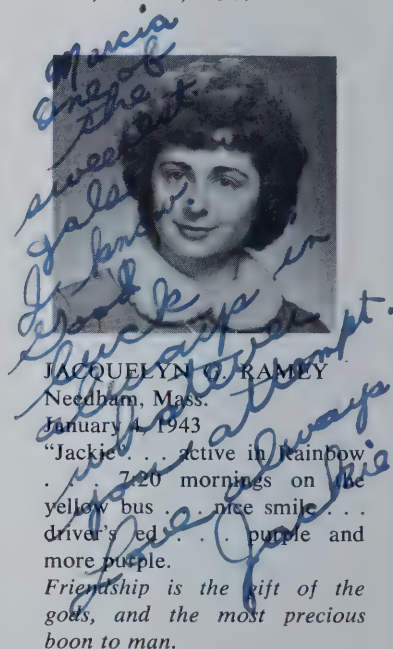 Marcia
One of
the
sweetest
gals
I know.
Good
luck
always in
whatever
you attempt.
Love always
Jackie
JACQUELYN G. RAMEY
Needham, Mass.
January 4, 1943
"Jackie . . . active in Rainbow
. . . 7:20 mornings on the
yellow bus . . . nice smile . . .
driver's ed . . . purple and
more purple.
Friendship is the gift of the
gods, and the most precious
boon to man.